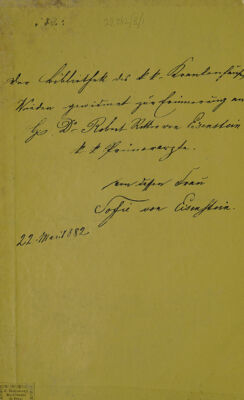 Der Bibliothek des k. k. Krankenhauses
Wieden gewidmet zur Erinnerung an
Dr. Robert Ritter von Eisenstein
k. k. Primararzte.
von dessen Frau
Sofie von Eisenstein.
22. Mai 1882.